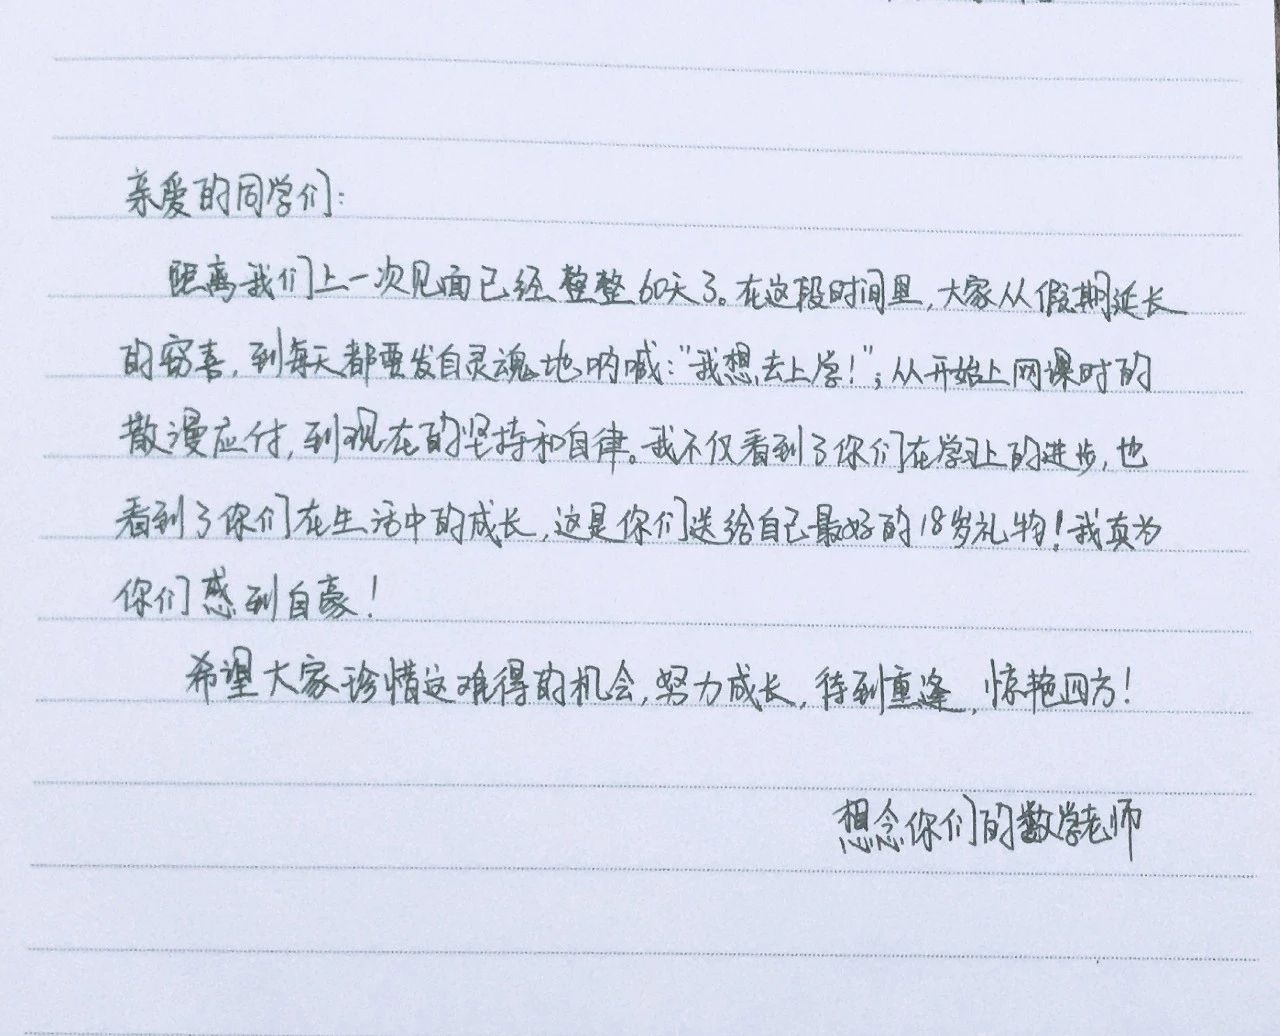 亲爱的同学们:
距离我们上一次见面已经整整60天了。在这段时间里,大家从假期延长
的窃喜,到每天都要发自灵魂地呐喊:"我想去上学!";从开始上网课时的
散漫应付,到现在的坚持和自律。我不仅看到了你们在学习上的进步,也
看到了你们在生活中的成长,这是你们送给自己最好的18岁礼物!我真为
你们感到自豪!
希望大家珍惜这难得的机会,努力成长,待到重逢,惊艳四方!
想念你们的数学老师